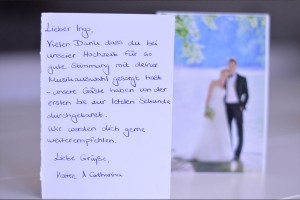 Lieber Ingo,
Vielen Dank, dass du bei
unserer Hochzeit für so
gute Stimmung mit deiner
Musikauswahl gesorgt hast
- unsere Gäste haben von der
ersten bis zur letzten Sekunde
durchgetanzt.
Wir werden dich gerne
weiterempfehlen.
Liebe Grüße,
& Catharina